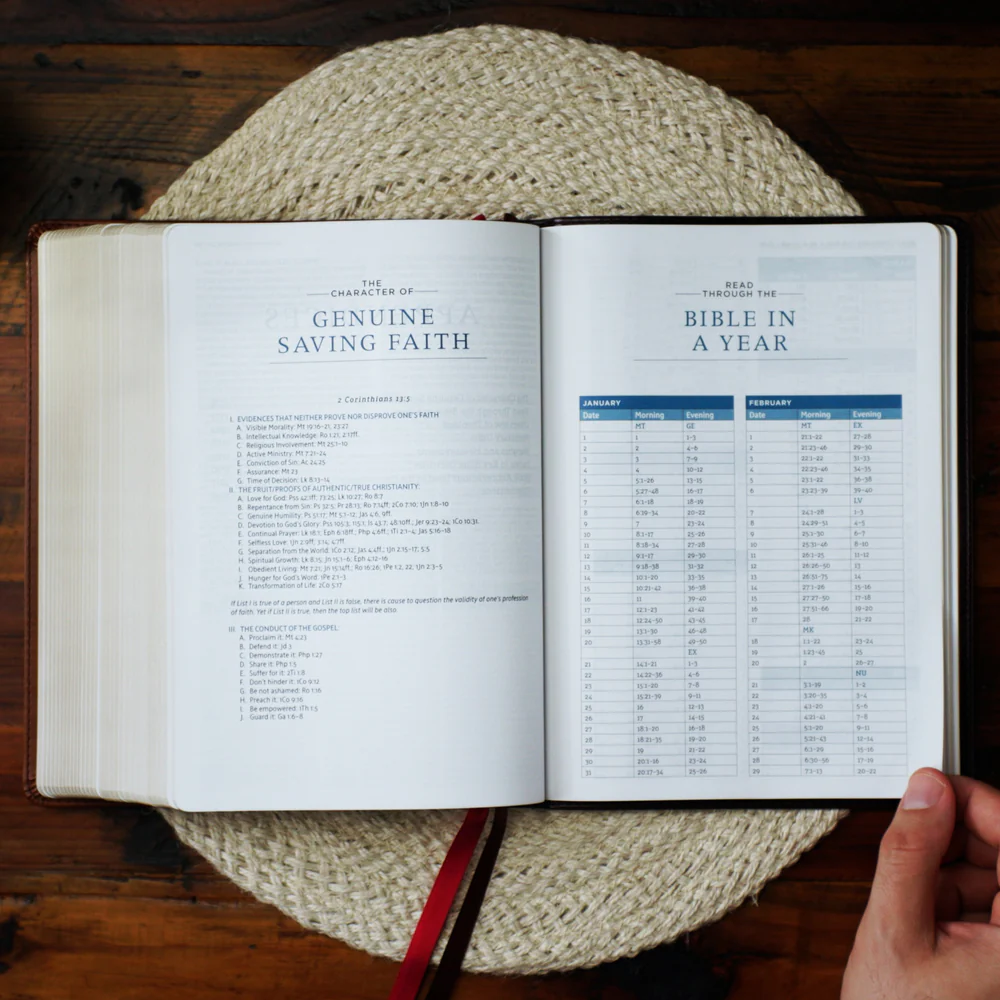 THE
CHARACTER OF
GENUINE
SAVING FAITH
2 Corinthians 13:5
I. EVIDENCES THAT NEITHER PROVE NOR DISPROVE ONE'S FAITH
A. Visible Morality: Mt 19:16–21; 23:27
B. Intellectual Knowledge: Ro 1:21; 2:17ff.
C. Religious Involvement: Mt 25:1–10
D. Active Ministry: Mt 7:21–24
E. Conviction of Sin: Ac 24:25
F. Assurance: Mt 23
G. Time of Decision: Lk 8:13–14
II. THE FRUIT/PROOFS OF AUTHENTIC/TRUE CHRISTIANITY:
A. Love for God: Pss 42:1ff; 73:25; Lk 10:27; Ro 8:7
B. Repentance from Sin: Ps 32:5; Pr 28:13; Ro 7:14ff; 2Co 7:10; 1Jn 1:8–10
C. Genuine Humility: Ps 51:17; Mt 5:1–12; Jas 4:6, 9ff.
D. Devotion to God's Glory: Pss 105:3; 115:1; Is 43:7; 48:10ff.; Jer 9:23–24; 1Co 10:31
E. Continual Prayer: Lk 18:1; Eph 6:18ff.; Php 4:6ff.; 1Ti 2:1–4; Jas 5:16–18
F. Selfless Love: 1Jn 2:9ff; 3:14; 4:7ff.
G. Separation from the World: 1Co 2:12; Jas 4:4ff.; 1Jn 2:15–17; 5:5
H. Spiritual Growth: Lk 8:15; Jn 15:1–6; Eph 4:12–16
I. Obedient Living: Mt 7:21; Jn 15:14ff.; Ro 16:26; 1Pe 1:2, 22; 1Jn 2:3–5
J. Hunger for God's Word: 1Pe 2:1–3
K. Transformation of Life: 2Co 5:17
If List I is true of a person and List II is false, there is cause to question the validity of one's profession
of faith. Yet if List II is true, then the top list will be also.
III. THE CONDUCT OF THE GOSPEL:
A. Proclaim it: Mt 4:23
B. Defend it: Jd 3
C. Demonstrate it: Php 1:27
D. Share it: Php 1:5
E. Suffer for it: 2Ti 1:8
F. Don't hinder it: 1Co 9:12
G. Be not ashamed: Ro 1:16
H. Preach it: 1Co 9:16
I. Be empowered: 1Th 1:5
J. Guard it: Ga 1:6–8
READ
THROUGH THE
BIBLE IN
A YEAR
JANUARY
Date Morning Evening
MT GE
1 1–3
2 2 4–6
3 3 7–9
4 4 10–12
5 5:1–26 13–15
6 5:27–48 16–17
7 6:1–18 18–19
8 6:19–34 20–22
9 7 23–24
10 8:1–17 25–26
11 8:18–34 27–28
12 9:1–17 29–30
13 9:18–38 31–32
14 10:1–20 33–35
15 10:21–42 36–38
16 11 39–40
17 12:1–23 41–42
18 12:24–50 43–45
19 13:1–30 46–48
20 13:31–58 49–50
EX
21 14:1–21 1–3
22 14:22–36 4–6
23 15:1–20 7–8
24 15:21–39 9–11
25 16 12–13
26 17 14–15
27 18:1–20 16–18
28 18:21–35 19–20
29 19 21–22
30 20:1–16 23–24
31 20:17–34 25–26
FEBRUARY
Date Morning Evening
MT EX
1 21:1–22 27–28
2 21:23–46 29–30
3 22:1–22 31–33
4 22:23–46 34–35
5 23:1–22 36–38
6 23:23–39 39–40
LV
7 24:1–28 1–3
8 24:29–51 4–5
9 25:1–30 6–7
10 25:31–46 8–10
11 26:1–25 11–12
12 26:26–50 13
13 26:51–75 14
14 27:1–26 15–16
15 27:27–50 17–18
16 27:51–66 19–20
17 28 21–22
MK
18 1:1–22 23–24
19 1:23–45 25
20 2 26–27
NU
21 3:1–19 1–2
22 3:20–35 3–4
23 4:1–20 5–6
24 4:21–41 7–8
25 5:1–20 9–11
26 5:21–43 12–14
27 6:1–29 15–16
28 6:30–56 17–19
29 7:1–13 20–22